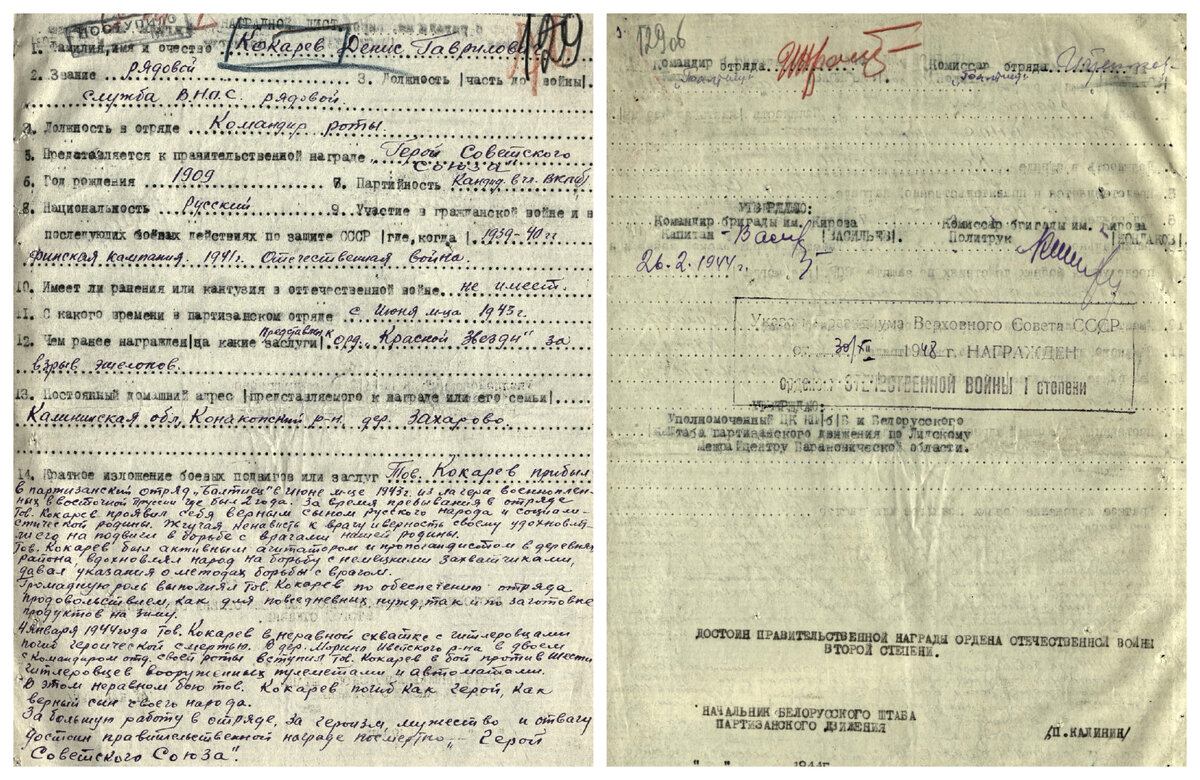 ПОСТУПИЛО
НАГРАДНОЙ ЛИСТ
129
1. Фамилия, имя и очество Кокарев Денис Гаврилович
2. Звание рядовой 3. Должность |часть до войны|.
служба ВНОС рядовой.
4. Должность в отряде Командир роты.
5. Представляется к правительственной награде "Герой Советского
Союза"
6. Год рождения 1909 7. Партийность Кандид. в чл. ВКП(б)
8. Национальность Русский 9. Участие в гражданской войне и в
последующих боевых действиях по защите СССР |где, когда| 1939-40 гг
Финская кампания. 1941г. Отечественная война.
10. Имеет ли ранения или кантузия в оттечественной войне. не имеет.
11. С какого времени в партизанском отряде с Июня м-ца 1943г.
12. Чем ранее награжден |за какие заслуги| Представлен к орд. "Красной Звезды" за
взрыв эшелонов.
13. Постоянный домашний адрес |представляемого к награде или его семьи|
Калининская обл, Конаковский р-н. дер. Захарово.
14. Краткое изложение боевых подвигов или заслуг Тов. Кокарев прибыл
в партизанский отряд "Балтиец" в Июне м-це 1943г. из лагеря военноплен-
ных в восточной Пруссии где был 2 года. За время пребывания в отряде
тов. Кокарев проявил себя верным сыном русского народа и социали-
стической родины. Жгучая ненависть к врагу и верность своему удохновля-
ли его на подвиги в борьбе с врагами нашей родины.
Тов. Кокарев был активным агитатором и пропогандистом в деревнях
района вдохновлял народ на борьбу с немецкими захватчиками,
давал указания о методах борьбы с врагом.
Громадную роль выполнял тов. Кокарев по обеспечению отряда
продовольствием, как для повседневных нужд, так и по заготовке
продуктов на зиму.
4 января 1944 года тов. Кокарев в неравной схватке с гитлеровцами
погиб героической смертью. В дер. Морино Ивейского р-на в двоем
с Командиром отд. своей роты вступил тов. Кокарев в бой против шести
гитлеровцев вооруженных пулеметами и автоматами.
В этом неравном бою тов. Кокарев погиб как герой, как
верный сын своего народа.
За большую работу в отряде, за героизм, мужество и отвагу
достоин правительственной награде посмертно - "Герой
Советского Союза".
129об
Командир отряда Комиссар отряда
УТВЕРЖДАЮ:
Командир бригады им. Кирова Комиссар бригады им. Кирова
Капитан - |ВАСИЛЬЕВ|. Политрук
26.2.1944г.
Указом Президиума Верховного Совета СССР
от 30/XII 1948 г. НАГРАЖДЕН
орденом ОТЕЧЕСТВЕННОЙ ВОЙНЫ I степени
УТВЕРЖДАЮ:
Уполномоченный ЦК КП|б|Б и Белорусского
штаба партизанского движения по Лидскому
межрайцентру Барановической области.
ДОСТОИН ПРАВИТЕЛЬСТВЕННОЙ НАГРАДЫ ОРДЕНА ОТЕЧЕСТВЕННОЙ ВОЙНЫ
ВТОРОЙ СТЕПЕНИ.
НАЧАЛЬНИК БЕЛОРУССКОГО ШТАБА
ПАРТИЗАНСКОГО ДВИЖЕНИЯ
/П.КАЛИНИН/
" " 1944г.